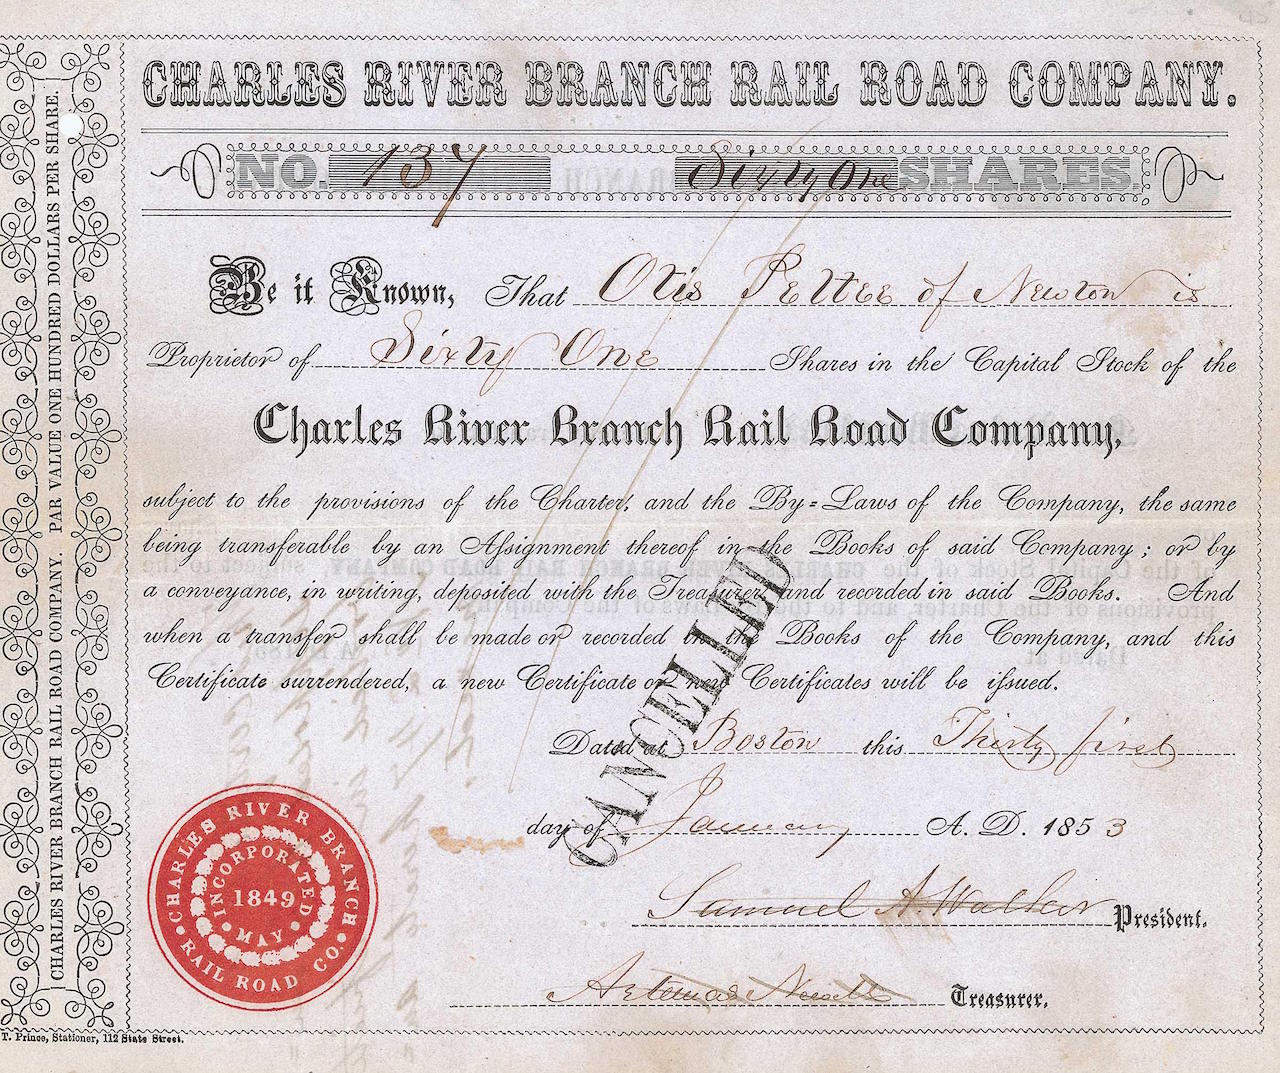 CHARLES RIVER BRANCH RAIL ROAD COMPANY.
NO. 137 Sixty One SHARES.
Be it Known, That Otis Pettee of Newton is
Proprietor of Sixty One Shares in the Capital Stock of the
Charles River Branch Rail Road Company,
subject to the provisions of the Charter, and the By=Laws of the Company, the same
being transferable by an Assignment thereof in the Books of said Company; or by
a conveyance, in writing, deposited with the Treasurer and recorded in said Books. And
when a transfer shall be made or recorded in the Books of the Company, and this
Certificate surrendered, a new Certificate or new Certificates will be issued.
Dated at Boston this Thirty first
day of January A. D. 1853
CANCELLED
Samuel A. Walker President.
Artemas Newell Treasurer.
CHARLES RIVER BRANCH
RAIL ROAD CO.
INCORPORATED
1849
MAY
CHARLES RIVER BRANCH RAIL ROAD COMPANY. PAR VALUE ONE HUNDRED DOLLARS PER SHARE.
T. Prince, Stationer, 112 State Street.